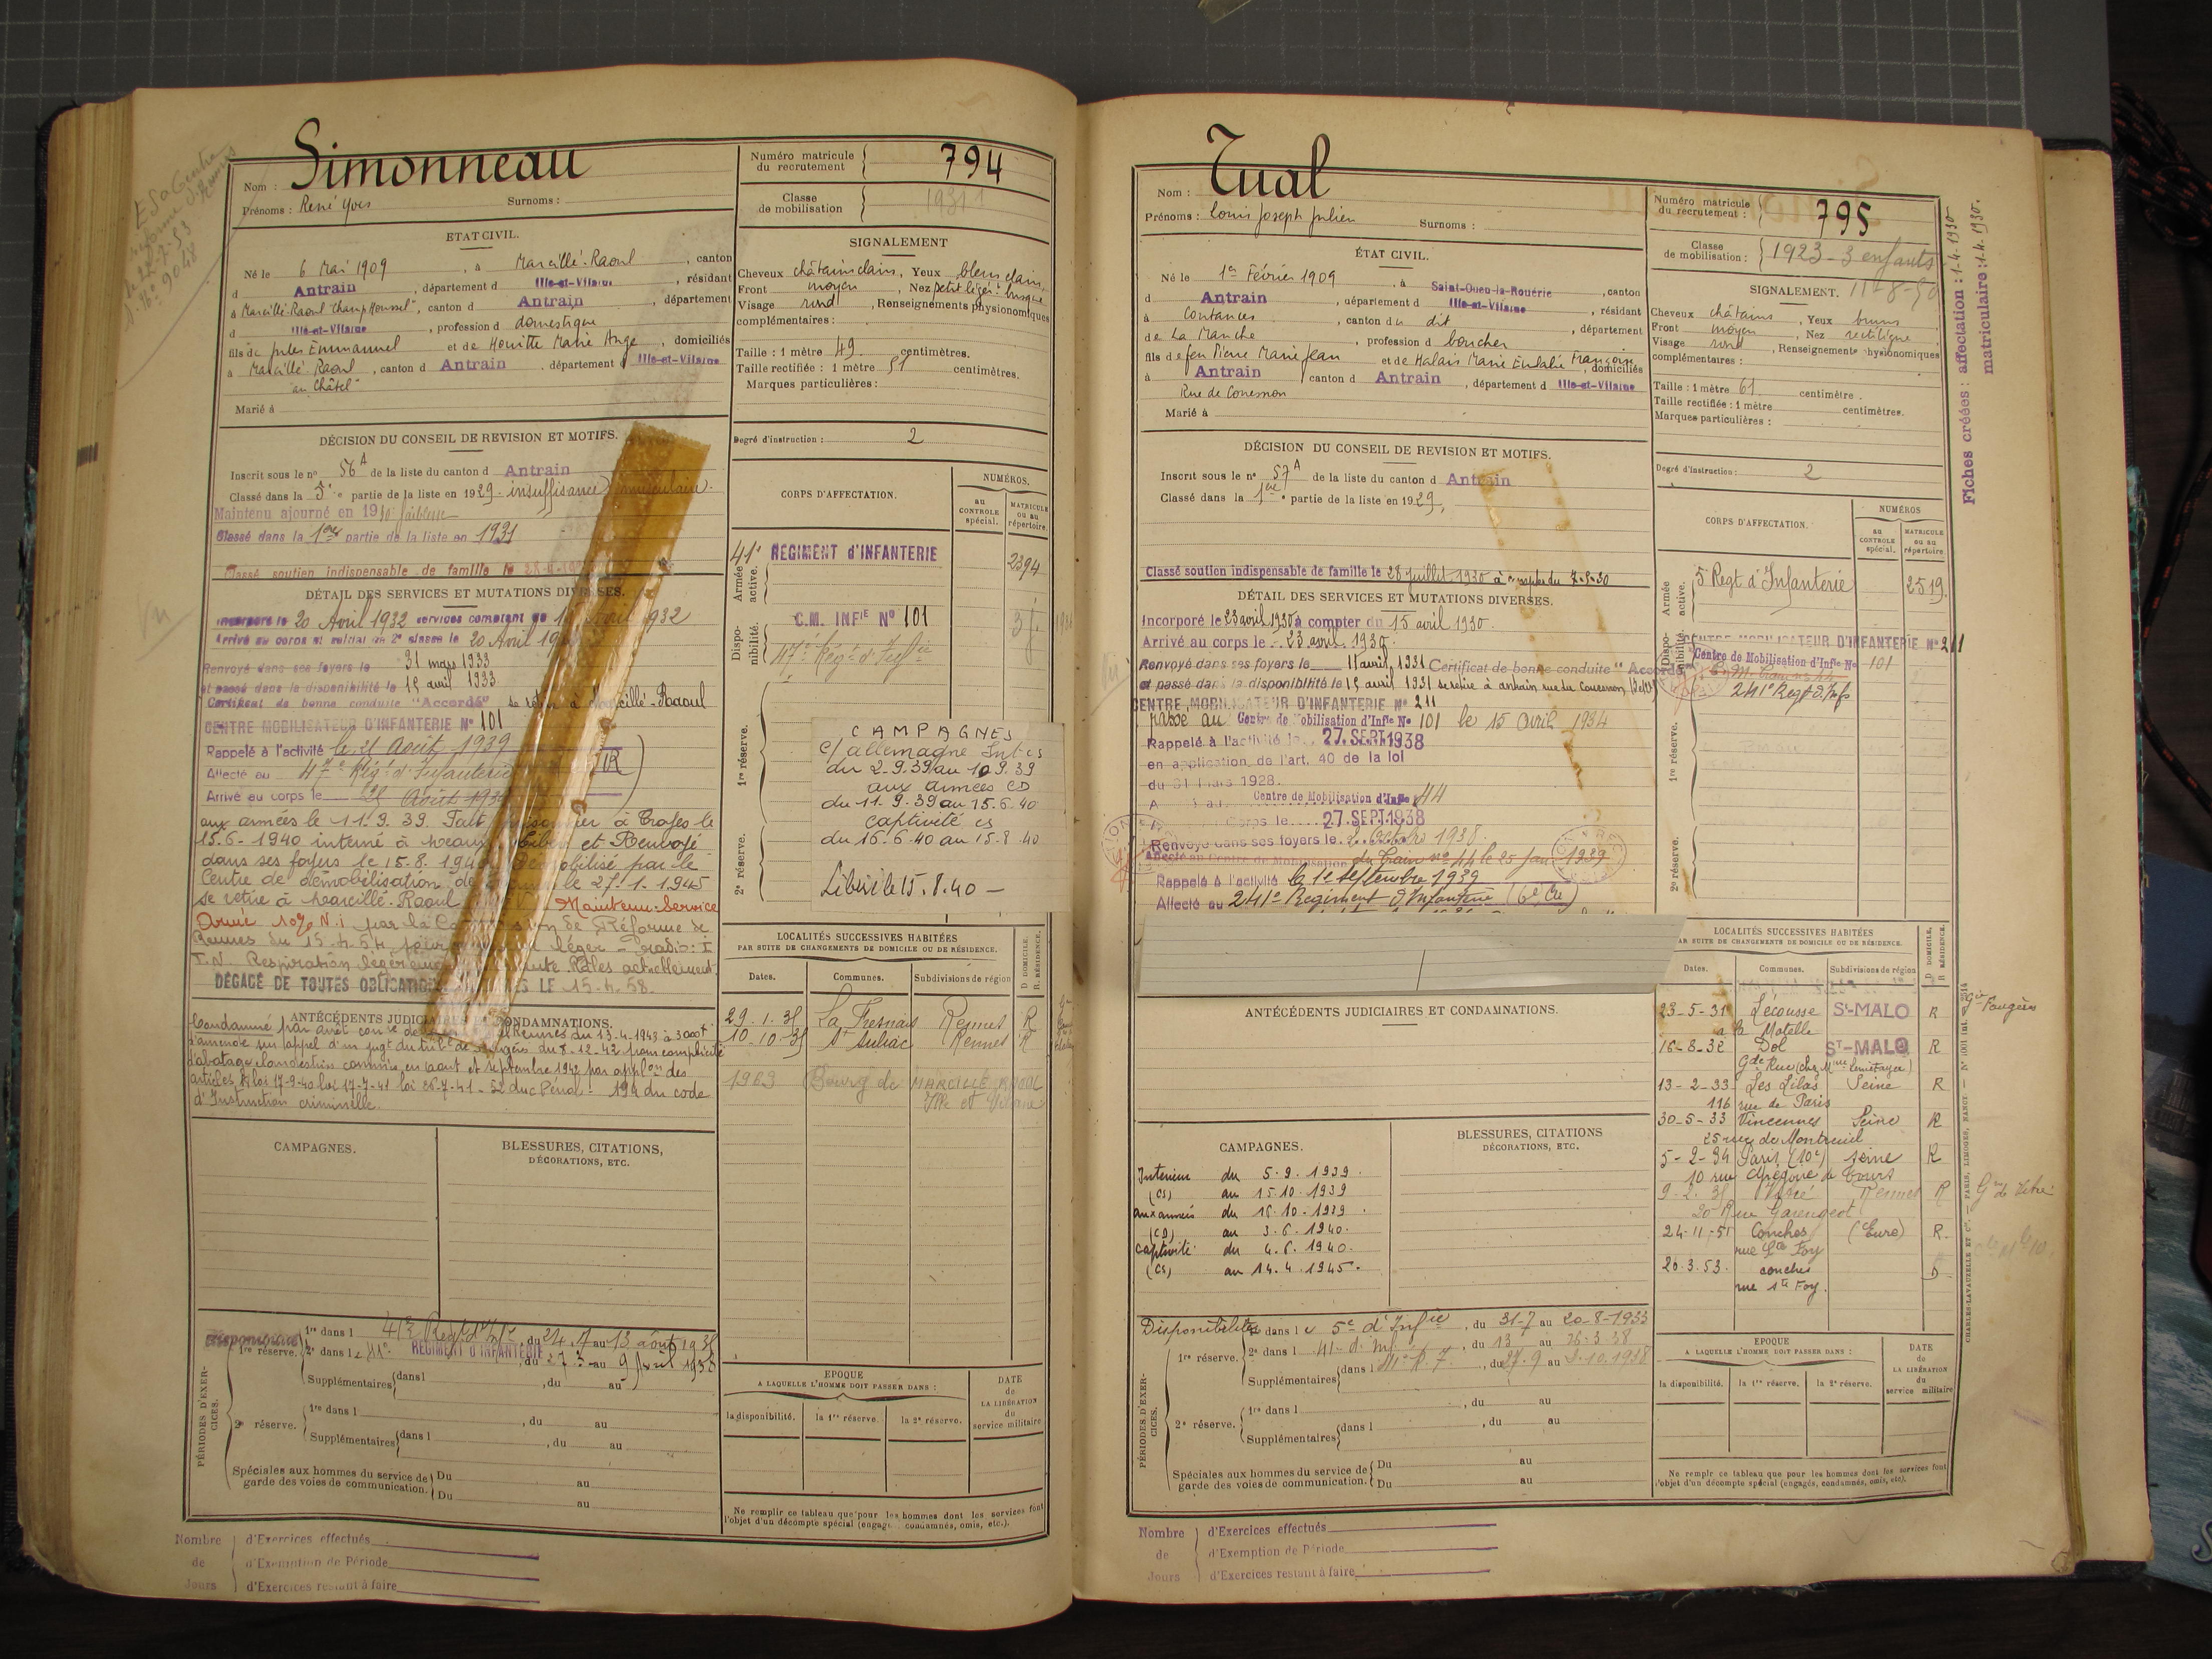 Simonneau
Nom :
Prénoms : René Yves Surnoms :
Numéro matricule du recrutement 794
Classe de mobilisation
ETAT CIVIL.
Né le 6 Mai 1909, à Marcillé-Raoul, canton
d Antrain, département d Ille-et-Vilaine, résidant
à Marcillé-Raoul, canton d Antrain, département
d Ille-et-Vilaine, profession d domestique
fils de Jules Emmanuel et de Houitte Marie Ange, domiciliés
à Marcillé Raoul, canton d Antrain, département d Ille-et-Vilaine
"au Châtel"
Marié à
SIGNALEMENT
Cheveux châtains clairs, Yeux bleus clairs
Front moyen, Nez petit léger. busqué
Visage rond, Renseignements physionomiques
complémentaires :
Taille : 1 mètre 49 centimètres.
Taille rectifiée : 1 mètre 51 centimètres.
Marques particulières :
Degré d'instruction : 2
DÉCISION DU CONSEIL DE REVISION ET MOTIFS.
Inscrit sous le n° 56 A de la liste du canton d Antrain
Classé dans la 5e partie de la liste en 1929. insuffisance musculaire.
Maintenu ajourné en 1930 faiblesse
Classé dans la 1ère partie de la liste en 1931
Classé soutien indispensable de famille le
DÉTAIL DES SERVICES ET MUTATIONS DIVERSES.
Incorporé le 20 Avril 1932 services comptant du 1932
Arrivé au corps et soldat de 2e classe le 20 Avril
Renvoyé dans ses foyers le 31 mars 1933
et passé dans la disponibilité le 15 avril 1933
Certificat de bonne conduite "Accordé" se retire à Marcillé-Raoul
CENTRE MOBILISATEUR D'INFANTERIE N° 101
Rappelé à l'activité le 21 Août 1939
Affecté au 47e Régt d'Infanterie
Arrivé au corps le Août 1939
aux armées le 11.9.39. Fait prisonnier à Troyes le
15.6-1940 interné à Meaux Libéré et Renvoyé
dans ses foyers le 15.8.1940 Démobilisé par le
Centre de démobilisation de le 27.1.1945
se retire à Marcillé-Raoul Maintenu Service
Armé 10% N.i par la Commission de Réforme de
Rennes du 15.4.54 pour léger - Radio : I
T.N. Respiration légèrement Râles actuellement.
DÉGAGÉ DE TOUTES OBLIGATIONS LE 15.4.58.
CORPS D'AFFECTATION.
NUMÉROS.
au CONTROLE spécial.
MATRICULE ou au répertoire.
Armée active.
41e RÉGIMENT d'INFANTERIE 2394
Disponibilité.
C.M. INFIE N° 101
47e Régt d'Inftie
1re réserve.
2e réserve.
CAMPAGNES
C/ allemagne Int cs
du 2-9.39 au 10 9.39
aux armées CD
du 11.9.39 au 15.6.40
captivité cs
du 16.6.40 au 15.8.40
Libéré le 15.8.40 -
ANTÉCÉDENTS JUDICIAIRES ET CONDAMNATIONS.
Condamné par arrêt Rennes du 13.4.1943 à 3000f
d'amende sur appel d'un jugt du tribal de Fougères du 8.12.42 pour complicité
d'abatage clandestin commis en août et septembre 1942 par applon des
articles loi 17-9-40 loi 17-7-41 loi 26-7-41 - 52 du C Pénal - 194 du code
d'Instruction criminelle.
LOCALITÉS SUCCESSIVES HABITÉES
PAR SUITE DE CHANGEMENTS DE DOMICILE OU DE RÉSIDENCE.
D DOMICILE. R RÉSIDENCE.
Dates. Communes. Subdivisions de région
29.1.35 La Fresnais Rennes R
10-10-35 St Suliac Rennes R
1963 Bourg de MARCILLÉ RAOUL
Ille et Vilaine
CAMPAGNES.
BLESSURES, CITATIONS,
DÉCORATIONS, ETC.
PÉRIODES D'EXERCICES.
1re réserve.
1re dans l 41e Régt d'Infie, du 24.7 au 13 août 1935
2e dans l 41e RÉGIMENT D'INFANTERIE, du 27.3 au 9 Avril 1938
Supplémentaires dans l , du au
2e réserve.
1re dans l , du au
Supplémentaires dans l , du au
Spéciales aux hommes du service de garde des voies de communication. Du au
Du au
EPOQUE
A LAQUELLE L'HOMME DOIT PASSER DANS :
la disponibilité. la 1re réserve. la 2e réserve.
DATE de LA LIBÉRATION du service militaire
Ne remplir ce tableau que pour les hommes dont les services font
l'objet d'un décompte spécial (engagés, condamnés, omis, etc.).
Nombre de Jours
d'Exercices effectués
d'Exemption de Période
d'Exercices restant à faire
Tual
Nom :
Prénoms : Louis Joseph Julien Surnoms :
Numéro matricule du recrutement : 795
Classe de mobilisation : 1923 - 3 enfants
11-8-50
ÉTAT CIVIL.
Né le 1er Février 1909, à Saint-Ouen-la-Rouërie, canton
d Antrain, département d Ille-et-Vilaine, résidant
à Coutances, canton du dit, département
de La Manche, profession d boucher
fils de feu Pierre Marie Jean et de Halais Marie Eulalie Françoise, domiciliés
à Antrain canton d Antrain, département d Ille-et-Vilaine
Rue de Couesnon
Marié à
SIGNALEMENT.
Cheveux châtains, Yeux bruns
Front moyen, Nez rectiligne
Visage rond, Renseignements physionomiques
complémentaires :
Taille : 1 mètre 61 centimètre.
Taille rectifiée : 1 mètre centimètres.
Marques particulières :
Degré d'instruction : 2
Fiches créées : affectation : 1-4-1930
matriculaire : 1-4-1930.
DÉCISION DU CONSEIL DE REVISION ET MOTIFS.
Inscrit sous le n° 57 A de la liste du canton d Antrain
Classé dans la 1ère partie de la liste en 1929,
Classé soutien indispensable de famille le 28 Juillet 1930 à compter du 7-5-30
DÉTAIL DES SERVICES ET MUTATIONS DIVERSES.
Incorporé le 23 avril 1930 à compter du 15 avril 1930.
Arrivé au corps le 23 avril 1930.
Renvoyé dans ses foyers le 11 avril 1931 Certificat de bonne conduite "Accordé"
et passé dans la disponibilité le 15 avril 1931 se retire à Antrain rue du Couesnon
CENTRE MOBILISATEUR D'INFANTERIE N° 211
passé au Centre de Mobilisation d'Infie N° 101 le 15 Avril 1934
Rappelé à l'activité le 27.SEPT.1938
en application de l'art. 40 de la loi
du 31 Mars 1928.
Centre de Mobilisation d'Infie 44
Corps le 27.SEPT.1938
Renvoyé dans ses foyers le 2 Octobre 1938.
Affecté au Centre de Mobilisation du Train n° 44 le 25 Jan 1939
Rappelé à l'activité le 1er septembre 1939
Affecté au 241e Régiment d'Infanterie (6e Cie)
CORPS D'AFFECTATION.
NUMÉROS
au CONTROLE spécial.
MATRICULE ou au répertoire.
Armée active.
5e Regt d'Infanterie 2519.
Disponibilité.
CENTRE MOBILISATEUR D'INFANTERIE N° 211
Centre de Mobilisation d'Infie N° 101
241e Regt d'Infie
1re réserve.
2e réserve.
ANTÉCÉDENTS JUDICIAIRES ET CONDAMNATIONS.
LOCALITÉS SUCCESSIVES HABITÉES
PAR SUITE DE CHANGEMENTS DE DOMICILE OU DE RÉSIDENCE.
D DOMICILE. R RÉSIDENCE.
Dates. Communes. Subdivisions de région
23-5-31 Lécousse ST-MALO R Gie Fougères
a la Motelle
16-8-32 Dol ST-MALO R
Gde Rue (chez Mme
13-2-33 Les Lilas Seine R
116 rue de Paris
30-5-33 Vincennes Seine R
25 rue de Montreuil
5-2-34 Paris (10e) Seine R
10 rue Grégoire de Tours
9.2.35 Vitré Rennes R Gie de Vitré
20 Rue Garengeot
24-11-51 Conches (Eure) R
rue Ste Foy
26.3.53. conches D
rue Ste Foy.
CAMPAGNES.
Intérieur du 5.9.1939.
(CS) au 15.10.1939
aux armées du 16.10.1939.
(CD) au 3.6.1940.
Captivité du 4.6.1940.
(CS) au 14.4.1945.
BLESSURES, CITATIONS
DÉCORATIONS, ETC.
PÉRIODES D'EXERCICES.
Disponibilité dans le 5e d'Infie, du 31-7 au 20-8-1933
1re réserve.
2e dans l 41e d'Inf., du 13 au 26-3-38
Supplémentaires dans l, du 27.9 au 2.10.1938
2e réserve.
1re dans l , du au
Supplémentaires dans l , du au
Spéciales aux hommes du service de garde des voies de communication. Du au
Du au
EPOQUE
A LAQUELLE L'HOMME DOIT PASSER DANS :
la disponibilité. la 1re réserve. la 2e réserve.
DATE de LA LIBÉRATION du service militaire
Ne remplir ce tableau que pour les hommes dont les services font
l'objet d'un décompte spécial (engagés, condamnés, omis, etc).
CHARLES-LAVAUZELLE ET Cie. — PARIS, LIMOGES, NANCY
Nombre de Jours
d'Exercices effectués
d'Exemption de Période
d'Exercices restant à faire